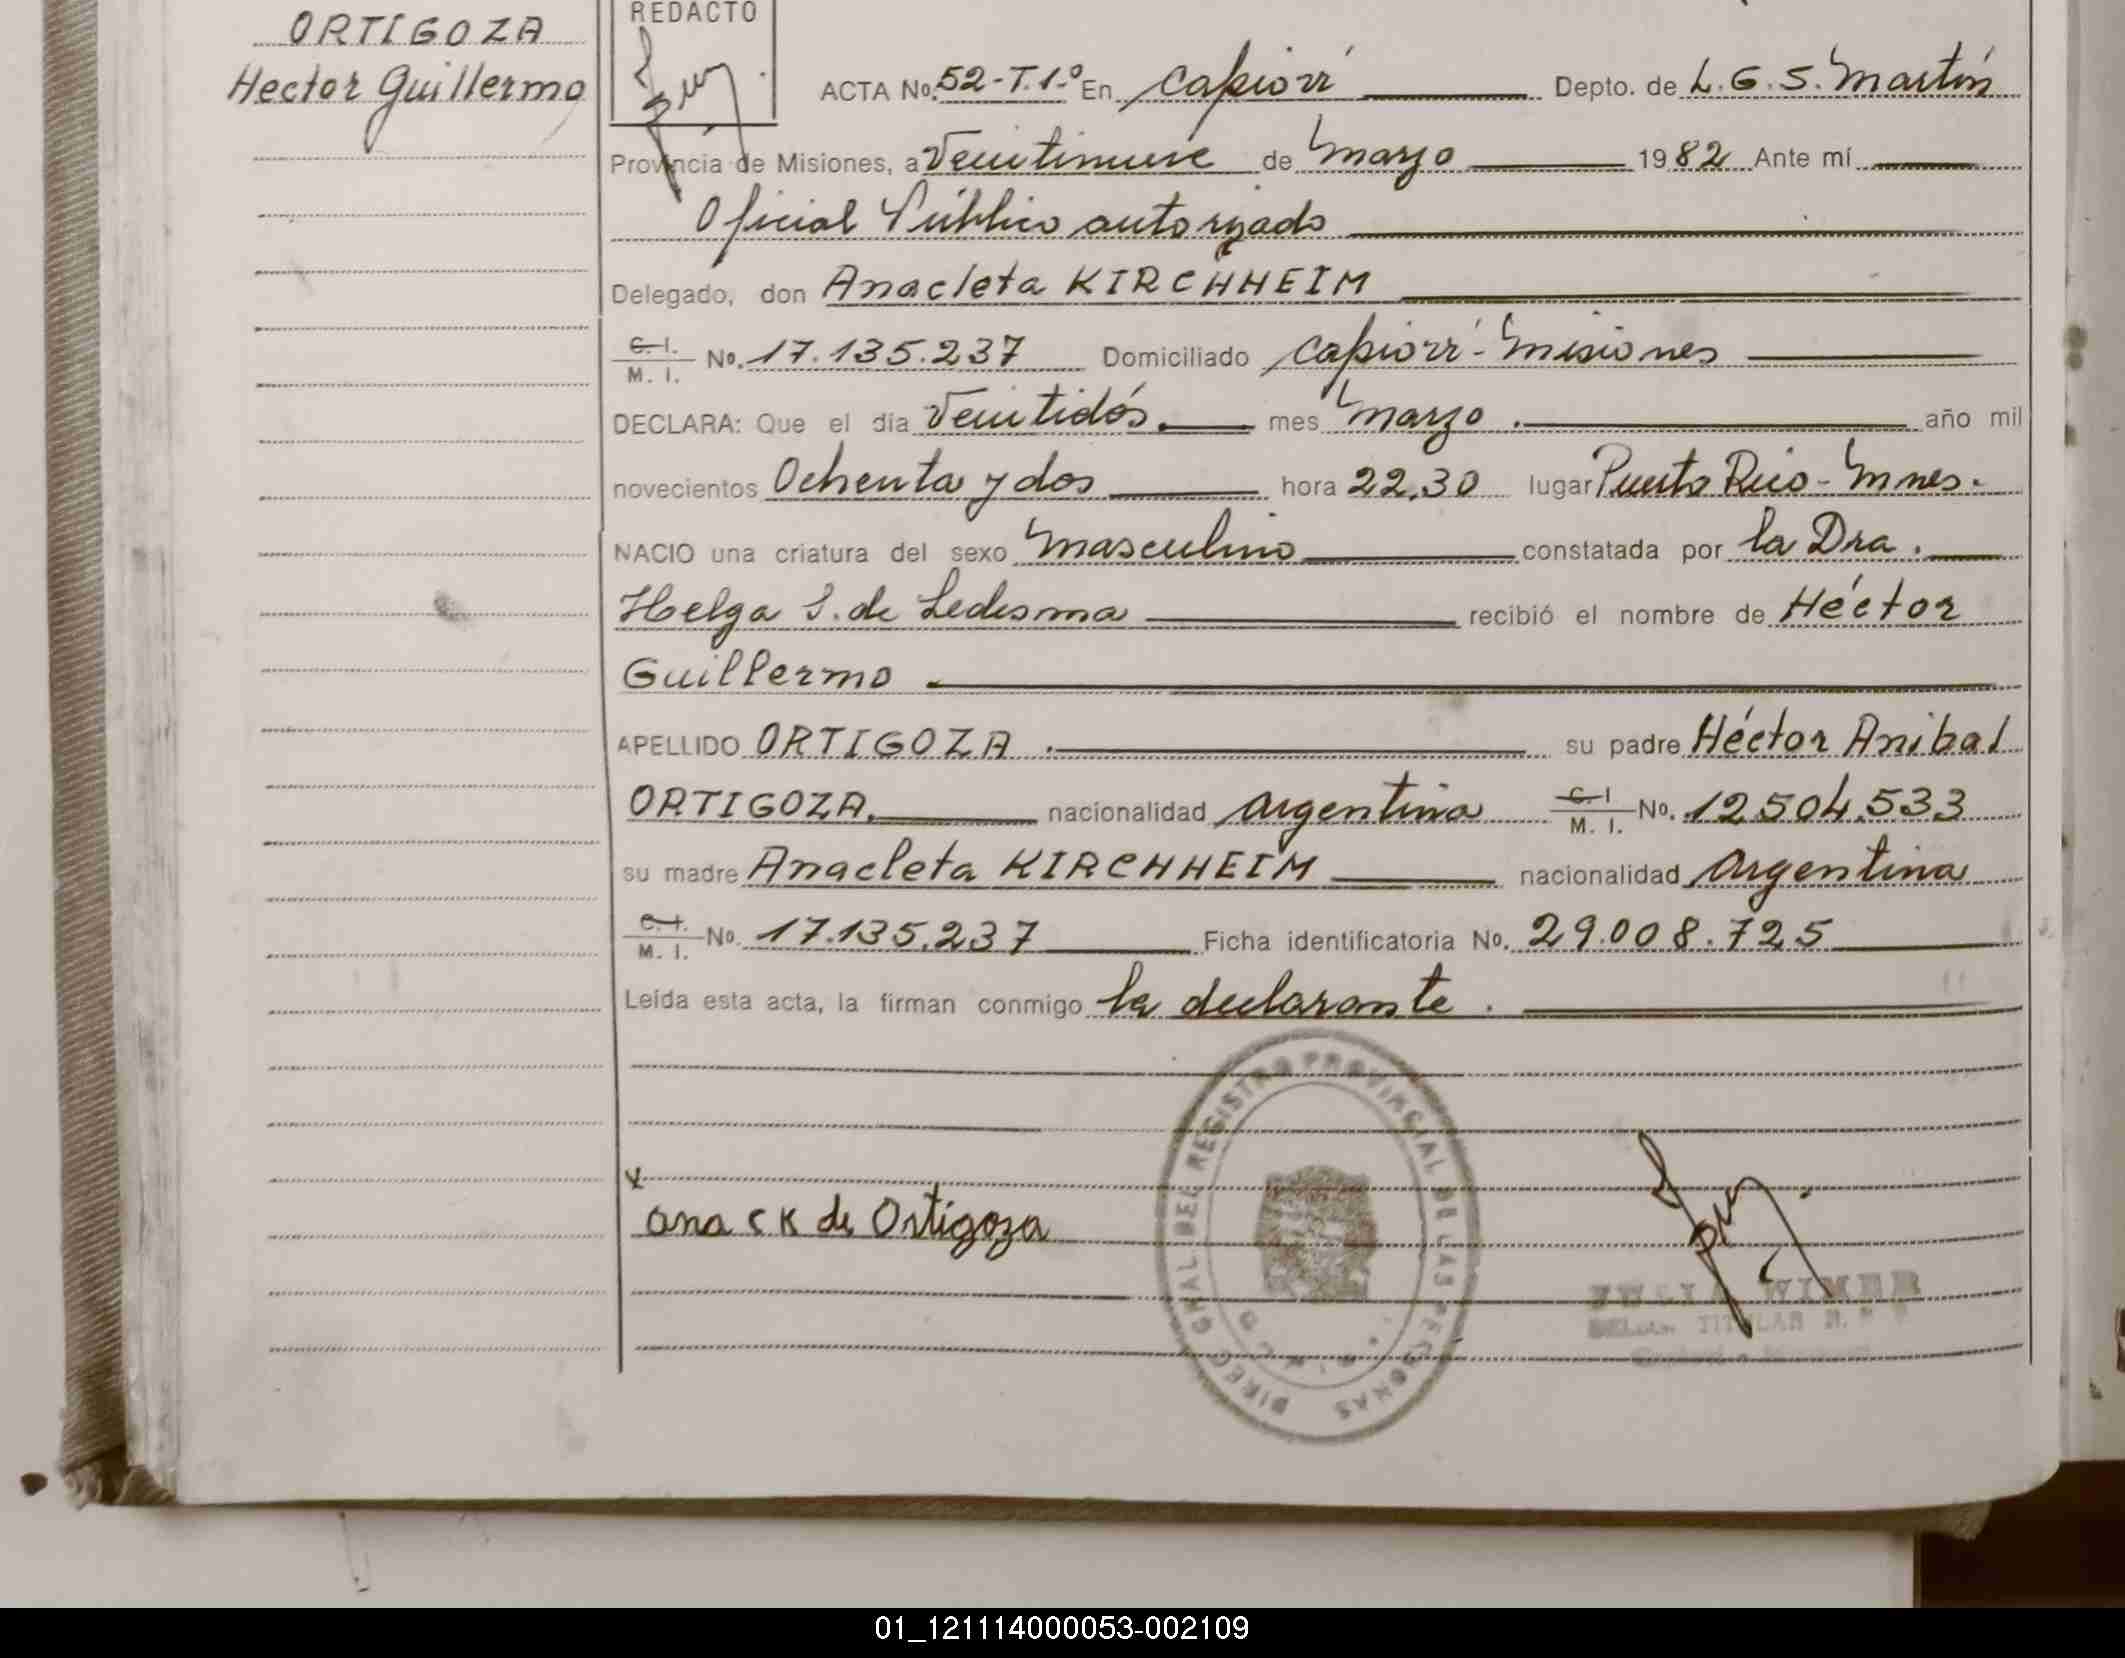 ORTIGOZA
Hector Guillermo
REDACTO
ACTA No. 52-T.1.º En Capioví Depto. de L.G.S. Martín
Provincia de Misiones, a Veintinueve de Marzo 1982 Ante mí
Oficial Público autorizado
Delegado, don Anacleta KIRCHHEIM
C. I. M. I. No. 17.135.237 Domiciliado Capioví - Misiones
DECLARA: Que el día Veintidós. mes Marzo. año mil
novecientos Ochenta y dos hora 22,30 lugar Puerto Rico - Mnes.
NACIO una criatura del sexo Masculino constatada por la Dra.
Helga S. de Ledesma recibió el nombre de Héctor
Guillermo.
APELLIDO ORTIGOZA. su padre Héctor Anibal
ORTIGOZA. nacionalidad Argentina C. I M. I. No. 12.504.533
su madre Anacleta KIRCHHEIM nacionalidad Argentina
C. I. M. I. No. 17.135.237 Ficha identificatoria No. 29.008.725
Leída esta acta, la firman conmigo la declarante.
DIREC GRAL DEL REGISTRO PROVINCIAL DE LAS PERSONAS
x
ana C K de Ortigoza
WIMER
TITULAR
01_121114000053-002109